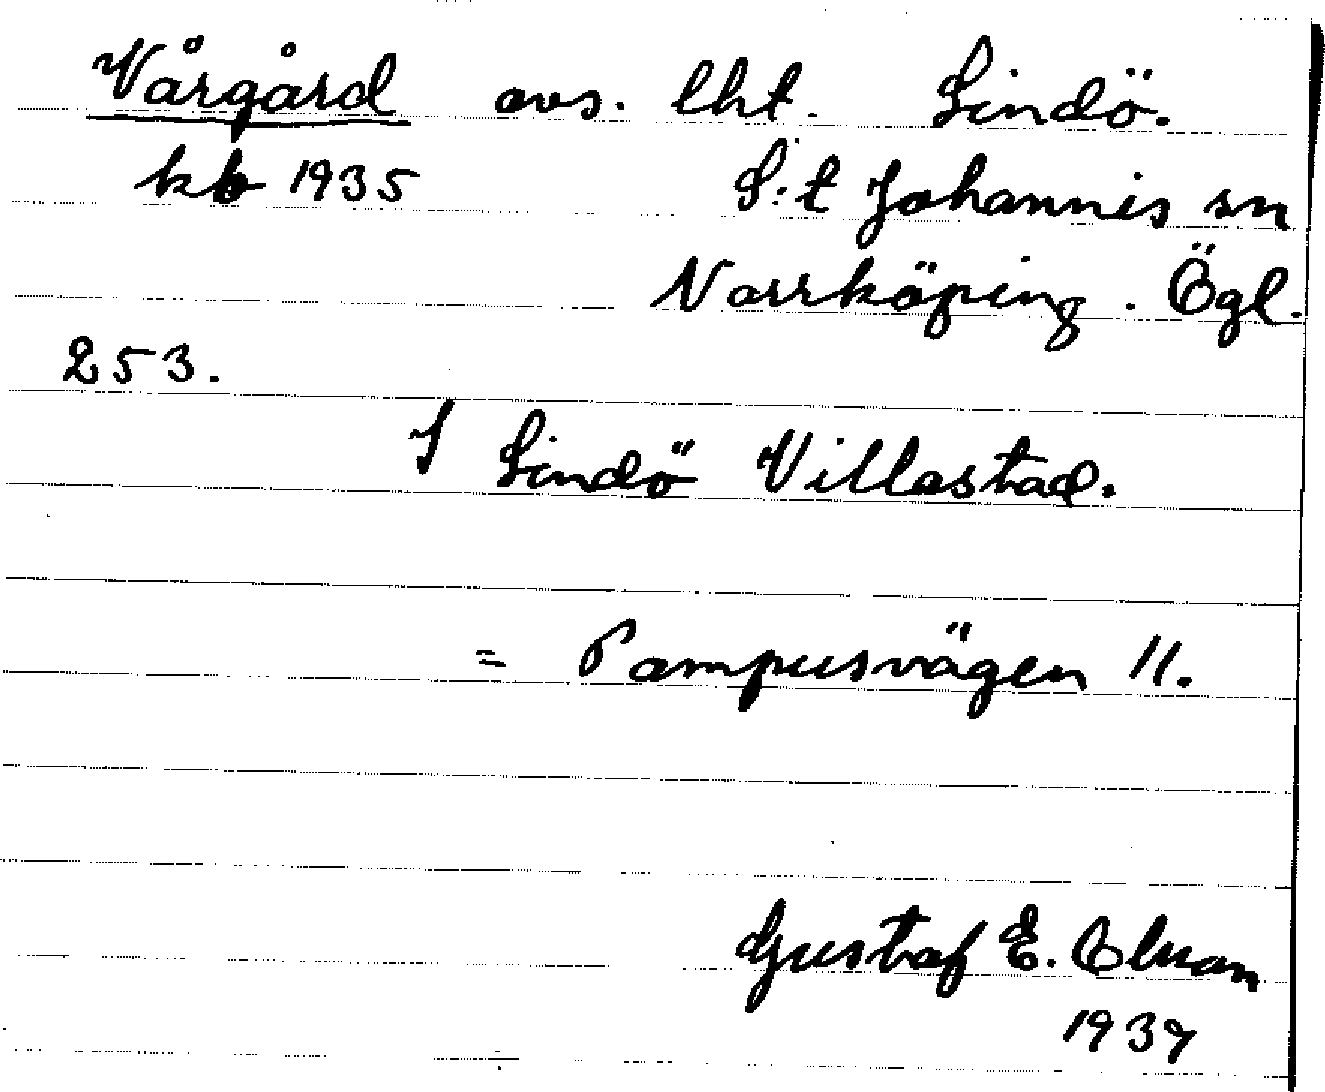 Vårgård avs. lht. Lindö.
kb 1935 S:t Johannis sn
Norrköping. Ögl.
253.
I Lindö Villastad.
= Pampusvägen 11.
Gustaf E.
1937